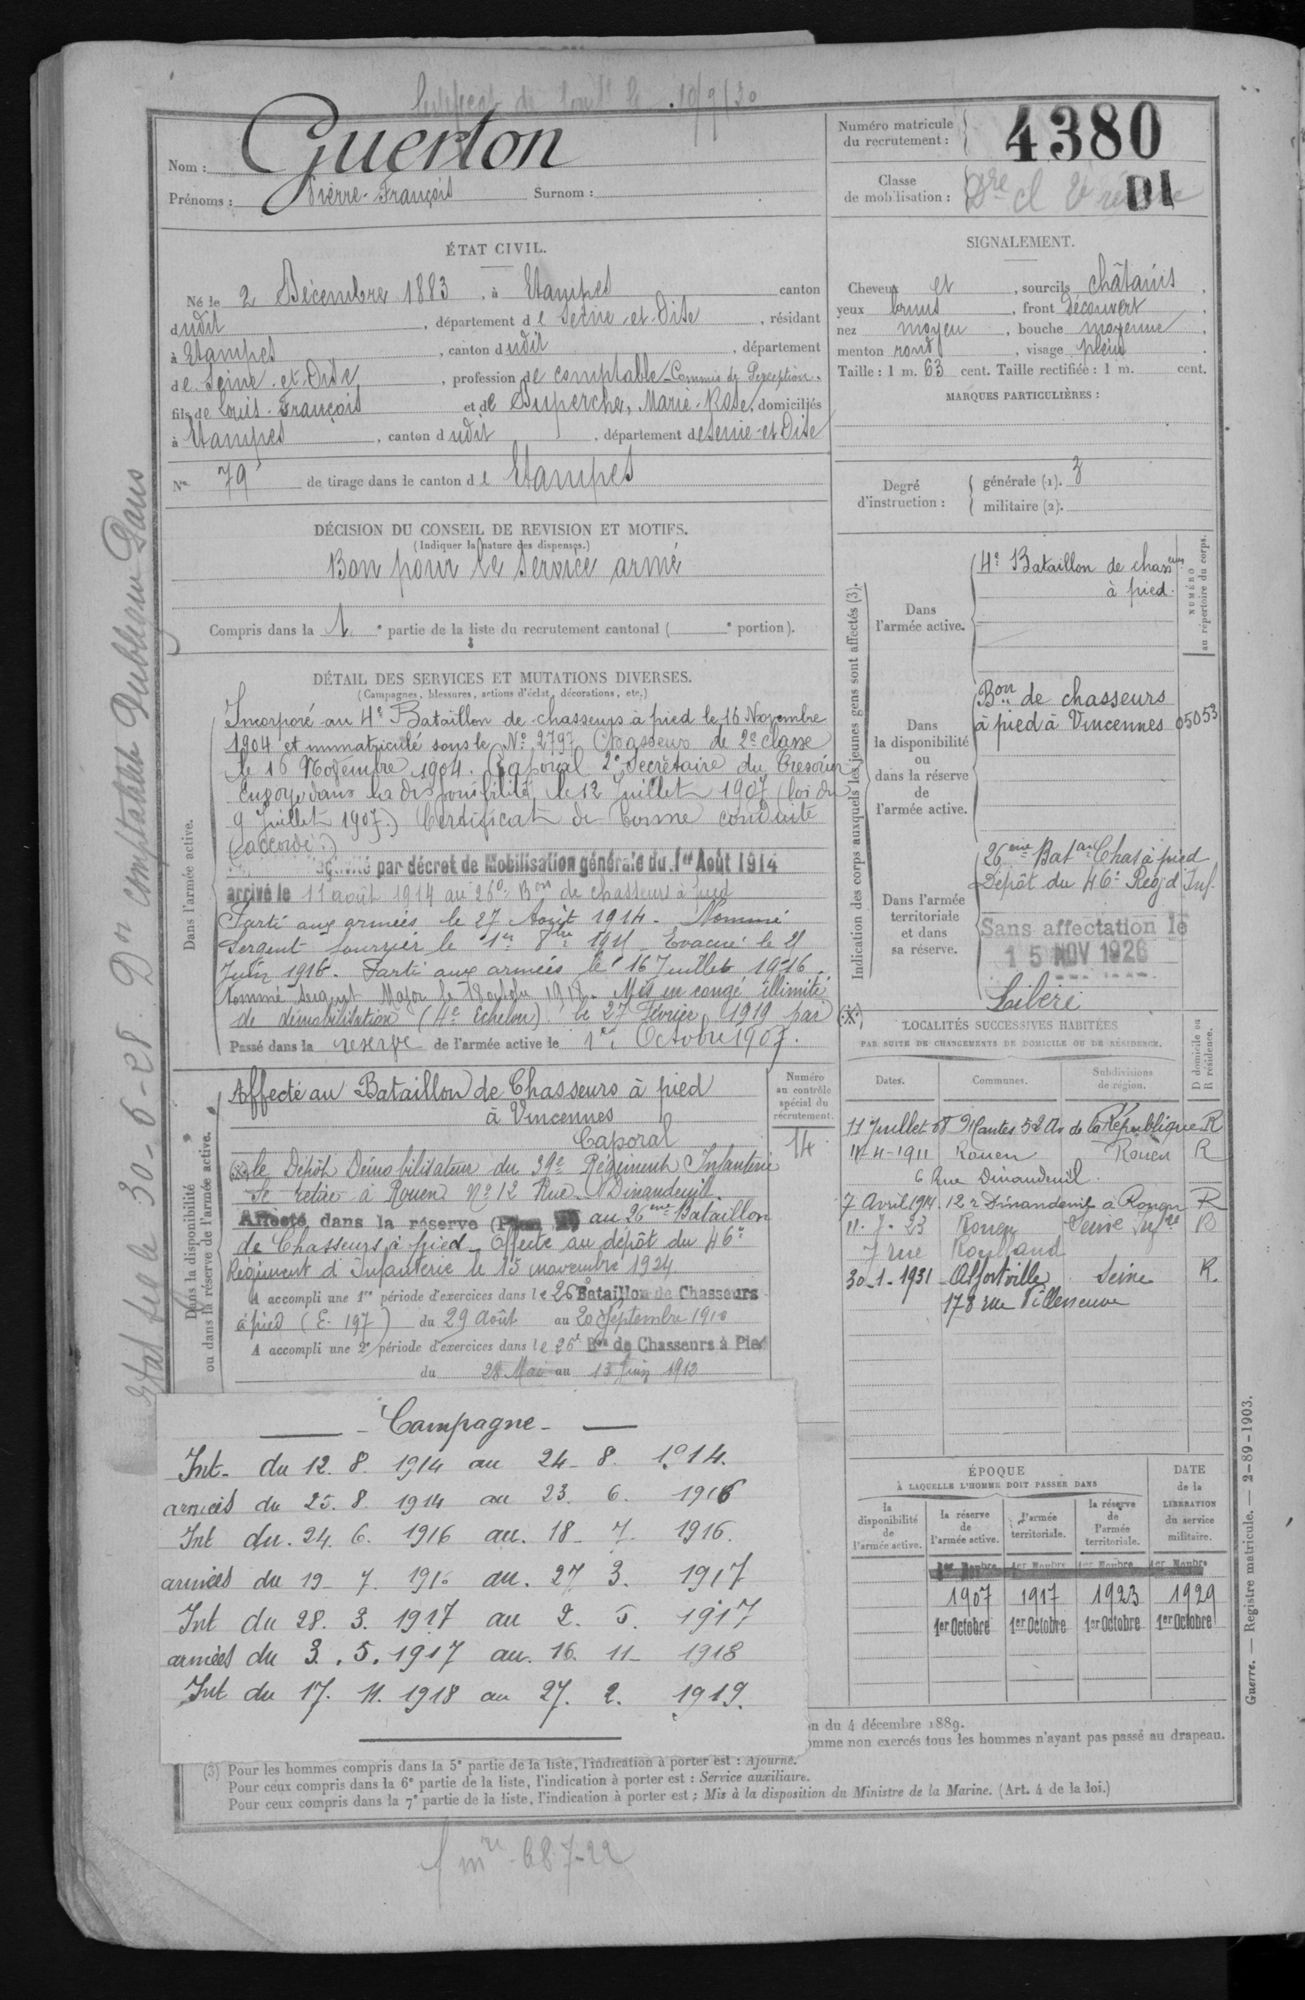 10/9/30
Nom : Guerton
Prénoms : Pierre-François Surnom :
Numéro matricule du recrutement : 4380
Classe de mobilisation :
DI
ÉTAT CIVIL.
Né le 2 Décembre 1883, à Etampes canton
dudit, département de Seine-et-Oise, résidant
à Etampes, canton dudit, département
de Seine-et-Oise, profession de comptable Commis de Perception.
fils de Louis-François et de Duperche, Marie-Rose, domiciliés
à Etampes, canton dudit, département de Seine-et-Oise
N° 79 de tirage dans le canton de Etampes
SIGNALEMENT.
Cheveux et, sourcils châtains,
yeux bruns, front découvert,
nez moyen, bouche moyenne,
menton rond, visage plein.
Taille : 1 m. 63 cent. Taille rectifiée : 1 m. cent.
MARQUES PARTICULIÈRES :
Degré d'instruction : générale (1). 3
militaire (2).
DÉCISION DU CONSEIL DE REVISION ET MOTIFS.
(Indiquer la nature des dispenses.)
Bon pour le service armé
Compris dans la 1e partie de la liste du recrutement cantonal ( e portion).
DÉTAIL DES SERVICES ET MUTATIONS DIVERSES.
(Campagnes, blessures, actions d'éclat, décorations, etc.)
Dans l'armée active.
Incorporé au 4e Bataillon de chasseurs à pied le 16 Novembre
1904 et immatriculé sous le N° 2797 Chasseur de 2e classe
le 16 Novembre 1904. Caporal 2e Secrétaire du Trésorier
Envoyé dans la disponibilité le 12 Juillet 1907 (loi du
9 Juillet 1907.) Certificat de bonne conduite
(accordé.)
par décret de Mobilisation générale du 1er Août 1914
arrivé le 11 août 1914 au 26e Bon de chasseurs à pied
Parti aux armées le 27 Août 1914. Nommé
Sergent fourrier le 1er 8bre 1915 Evacué le 21
Juin 1916. Parti aux armées le 16 Juillet 1916.
Nommé sergent Major le 18 octobre 1918. Mis en congé illimité
de démobilisation (4e Echelon) le 27 Février 1919 par (X)
Passé dans la reserve de l'armée active le 1er Octobre 1907.
Indication des corps auxquels les jeunes gens sont affectés (3).
NUMÉRO au répertoire du corps.
Dans l'armée active.
4e Bataillon de chasseurs
à pied.
Dans la disponibilité ou dans la réserve de l'armée active.
Bon de chasseurs
à pied à Vincennes 05053
Dans l'armée territoriale et dans sa réserve.
26ème Baton Chas à pied
Dépôt du 46e Rég d'Inf.
Sans affectation le
15 NOV 1926
Libéré
Dans la disponibilité ou dans la réserve de l'armée active.
Affecté au Bataillon de Chasseurs à pied
à Vincennes
Caporal
Numéro au contrôle spécial du recrutement.
14
(X) le Dépôt Démobilisateur du 39e Régiment Infanterie
Se retire à Rouen N° 12 Rue Dinanderie
Affecté dans la réserve (Plan ) au 26ème Bataillon
de Chasseurs à pied - Affecté au dépôt du 46e
Régiment d'Infanterie le 15 novembre 1924
A accompli une 1re période d'exercices dans le 26e Bataillon de Chasseurs
à pied (E. 197) du 29 Août au 20 Septembre 1910
A accompli une 2e période d'exercices dans le 26e Bon de Chasseurs à Pied
du 28 Mai au 13 Juin 1912
LOCALITÉS SUCCESSIVES HABITÉES
PAR SUITE DE CHANGEMENTS DE DOMICILE OU DE RÉSIDENCE.
Dates. Communes. Subdivisions de région. D domicile ou R résidence.
11 Juillet 08 Mantes 52 Av de la République R
14-4-1911 Rouen Rouen R
6 Rue Dinanderie
7 Avril 1914 12 r Dinanderie à Rouen R
11.7.23 Rouen Seine Infre R
7 rue Rolland
30-1-1931 Alfortville Seine R.
178 rue Villeneuve
Campagne
Int. du 12.8.1914 au 24-8.1914.
armées du 25.8.1914 au 23.6.1916
Int du 24.6.1916 au 18-7-1916.
armées du 19-7.1916 au 27 3.1917
Int du 28.3.1917 au 2.5.1917
armées du 3.5.1917 au 16.11-1918
Int du 17.11.1918 au 27.2.1919.
ÉPOQUE
À LAQUELLE L'HOMME DOIT PASSER DANS
DATE de la LIBÉRATION du service militaire.
la disponibilité de l'armée active. la réserve de l'armée active. l'armée territoriale. la réserve de l'armée territoriale.
1907 1917 1923 1929
1er Octobre 1er Octobre 1er Octobre 1er Octobre
n du 4 décembre 1889.
omme non exercés tous les hommes n'ayant pas passé au drapeau.
(3) Pour les hommes compris dans la 5e partie de la liste, l'indication à porter est : Ajourné.
Pour ceux compris dans la 6e partie de la liste, l'indication à porter est : Service auxiliaire.
Pour ceux compris dans la 7e partie de la liste, l'indication à porter est : Mis à la disposition du Ministre de la Marine. (Art. 4 de la loi.)
Guerre. — Registre matricule. — 2-89-1903.